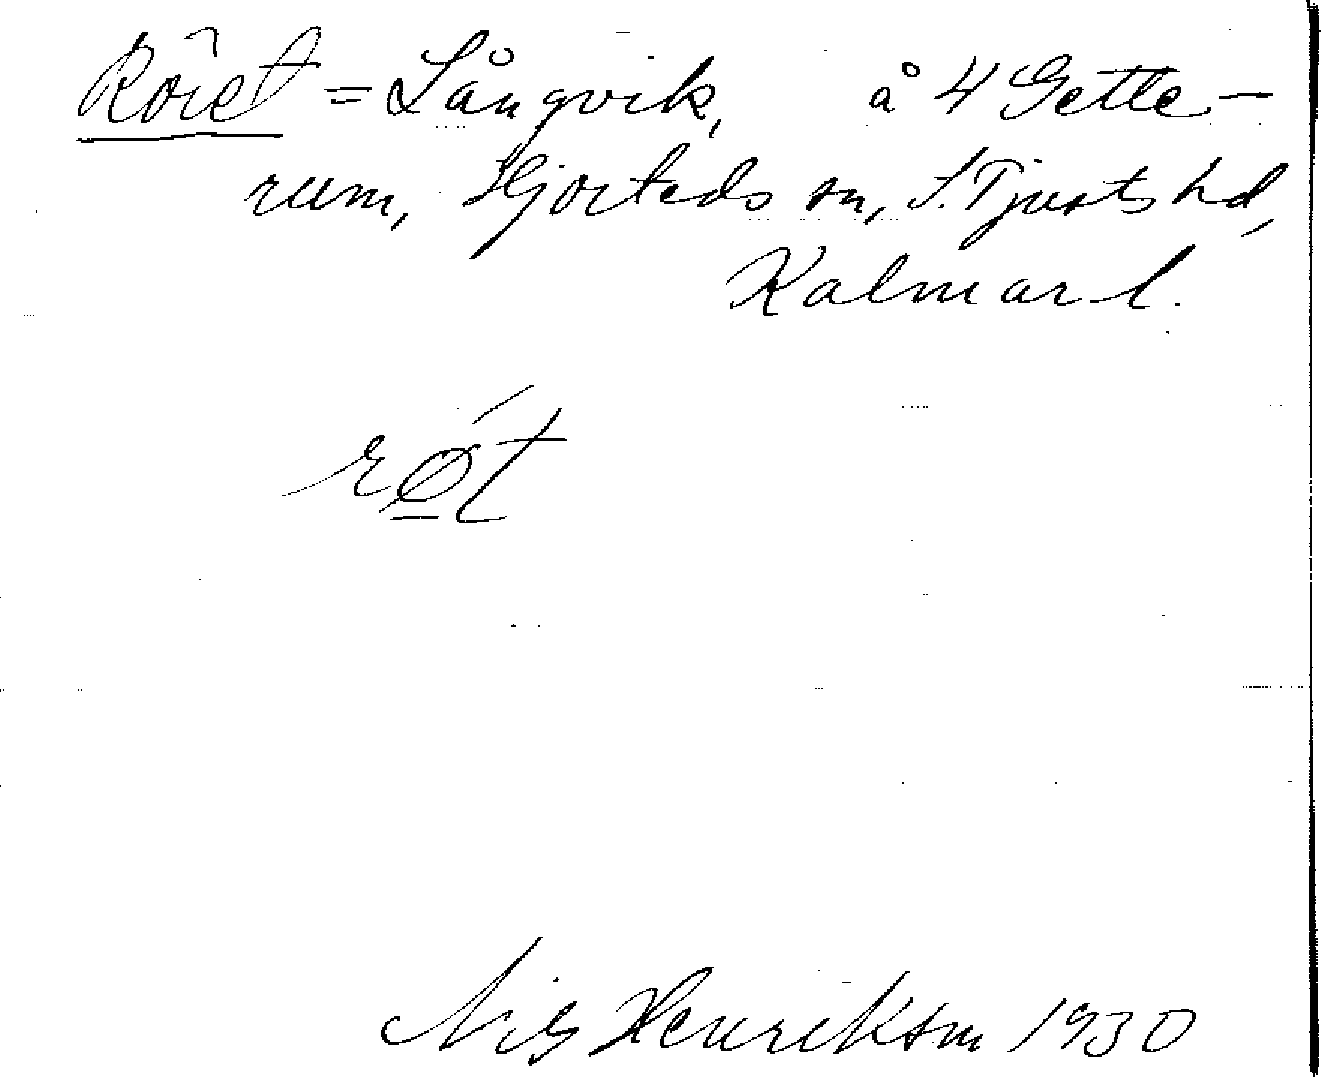 Röret = Långvik, å 4 Gette-
rum, Hjorteds sn, S. Tjusts hd,
Kalmar l.
rǿ̲t
Nils Henrikson 1930